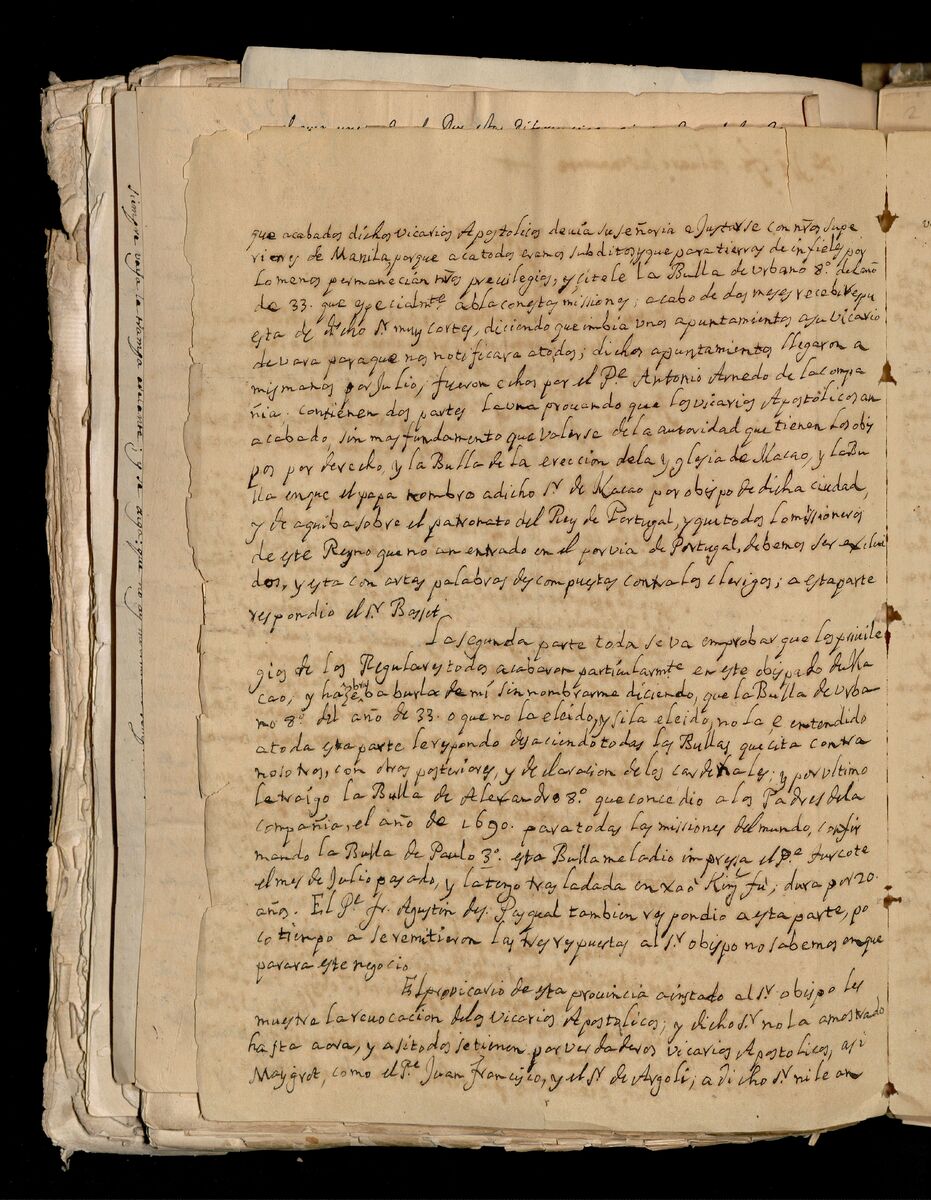 que acabados dichos vicarios Apostolicos devia su señoria eJustarse con nr̃os supe
riores de Manila, porque acatodos eramos subditos, y que para tierras de infieles por
lo menos permanecian nr̃os previlegios, y sitele la Bulla de Urbano 8º. del año
de 33. que especialmte. abla con estas missiones; acabo de dos meses recebi respu
esta de dicho Sr. muy cortes, diciendo que imbia unos apuntamientos asu vicario
de vara para que nos notificara atodos; dichos apuntamientos llegaron a
mis manos por Julio, fueron echos por el Pe. Antonio Arnedo de la compa
ñia. contienen dos partes la una provando que los vicarios Apostólicos an
acabado, sin mas fundamento que valerse de la autoridad que tienen los obis
pos por derecho, y la Bulla de la ereccion de la yglesia de Macao, y la Bu
lla en que el papa nombro adicho Sr. de Macao por obispo de dicha ciudad,
y de aqui ba sobre el patronato del Rey de Portugal, y que todos lo missioneros
de este Reyno que no an entrado en el por via de Portugal, debemos ser exclui
dos, y esta con artas palabras descompuestas contra los clerigos; a esta parte
respondio el Sr. Basset.
La segunda parte toda se va en probar que los privile
gios de los Regulares todos acabaron particularmte. en este obispado de Ma
cao, y haze ba burla de mi sin nombrarme diciendo, que la Bulla de Urba
no 8º. del año de 33. o que no la e leido, y si la e leido, no la e entendido
a toda esta parte le respondo desaciendo todas las Bullas que cita contra
nosotros, con otras posteriores, y declarasion de los cardenales; y por ultimo
le traigo la Bulla de Alexandro 8º. que concedio a los Padres de la
compañia, el año de 1690. para todas las missiones del mundo, confir
mando la Bulla de Paulo 3º. esta Bulla me la dio impresa el Pe. turcote
el mes de Julio pasado, y la tengo trasladada en xao King fu; dura por 20.
años. El Pe. fr. Agustin de S. Pasqual tambien respondio a esta parte, po
co tiempo a se remitieron las tres respuestas al Sr. obispo no sabemos en que
parara este negocio.
El provicario de esta provincia a instado al Sr. obispo les
muestre la revocacion de los vicarios Apostolicos; y dicho Sr. no la a mostrado
hasta aora, y asi todos se tienen por verdaderos vicarios Apostolicos, asi
Maygrot, como el Pe. Juan Francisco, y el Sr. de Argoli; a dicho Sr. ni le an